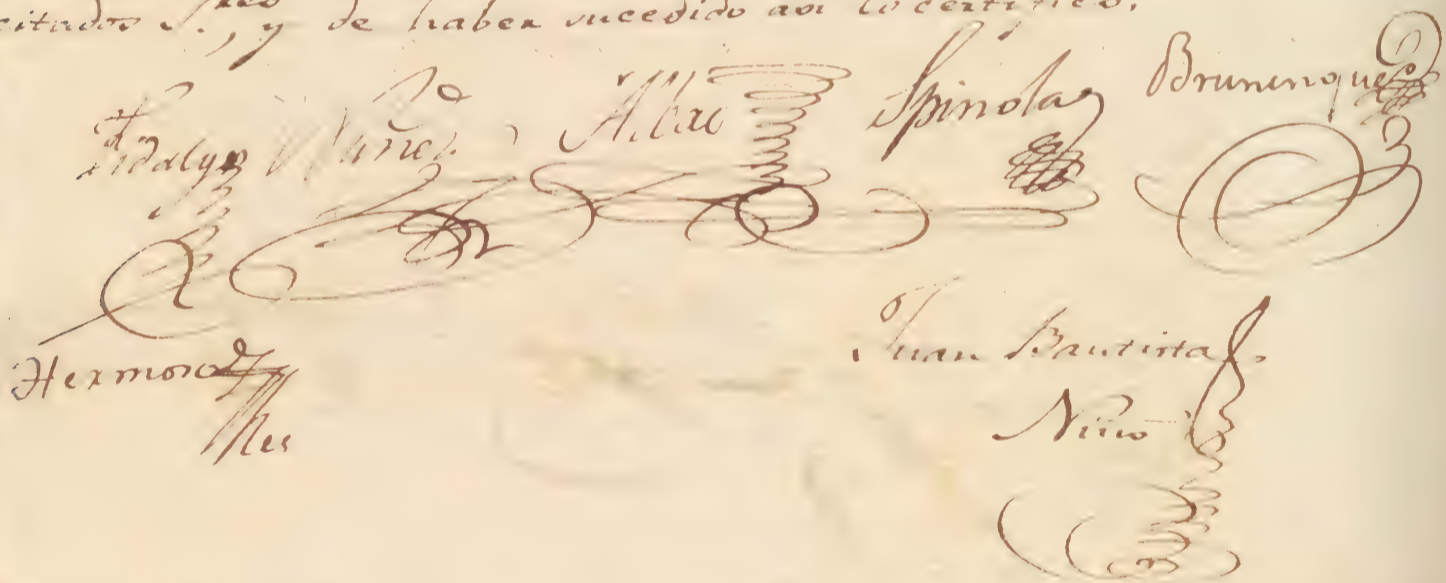 citados S.res, y de haber sucedido asi lo certifico.
Fidalgo Nuñez Albao Spinola Bruninque
Hermoso
Juan Bautista
Niño